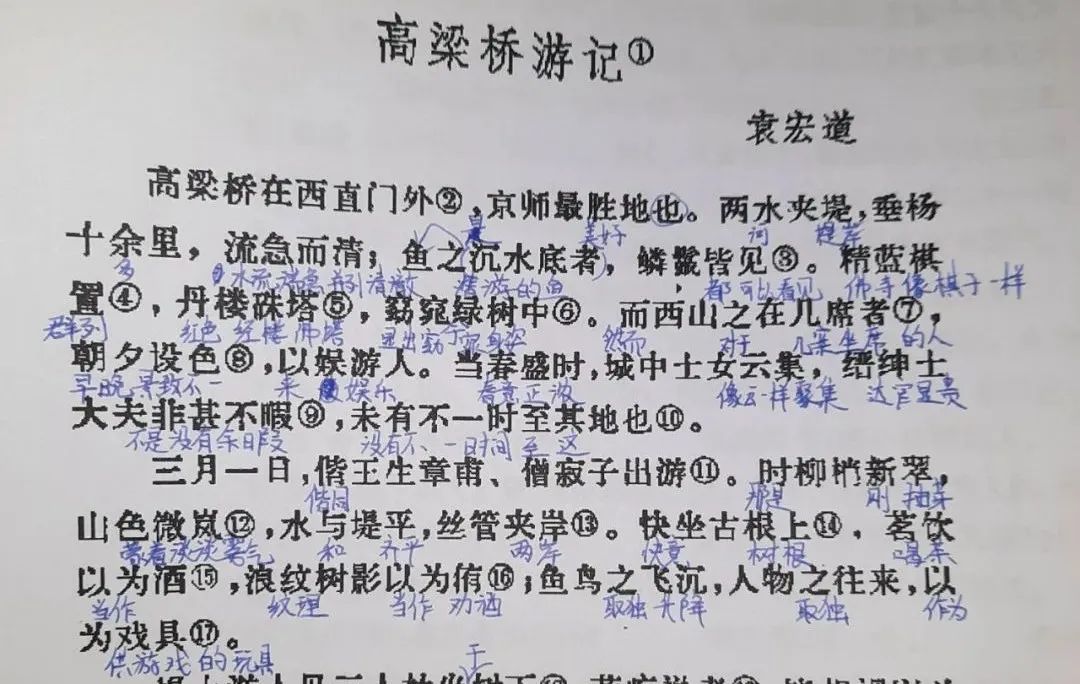 高梁桥游记①
袁宏道
高梁桥在西直门外②，京师最胜地也。两水夹堤，垂杨
是 美好 词 堤岸
十余里，流急而清；鱼之沉水底者，鳞鬣皆见③。精蓝棋
多 水流湍急并列清澈 潜游的鱼 都可以看见 佛寺像棋子一样
置④，丹楼硃塔⑤，窈窕绿树中⑥。而西山之在几席者⑦，
群列 红色 经楼佛塔 然而 对于 几案坐席的人
朝夕设色⑧，以娱游人。当春盛时，城中士女云集，缙绅士
早晚景致不一 来 娱乐 春意正浓 像云一样聚集 达官显贵
大夫非甚不暇⑨，未有不一时至其地也⑩。
不是没有余日暇 没有不一日时间至这
三月一日，偕王生章甫、僧寂子出游⑪。时柳梢新翠，
偕同 那是 刚抽芽
山色微岚⑫，水与堤平，丝管夹岸⑬。趺坐古根上⑭，茗饮
蒙着淡淡雾气 和 齐平 两岸 快意 树根 喝茶
以为酒⑮，浪纹树影以为侑⑯；鱼鸟之飞沉，人物之往来，以
当作 纹理 当作 劝酒 取独 升降 取独 作为
为戏具⑰。
供游戏的玩具 于